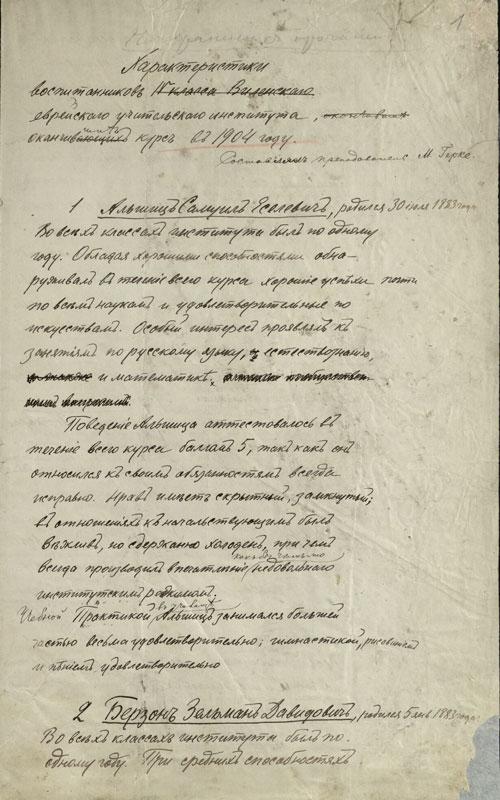 1
Характеристики
воспитанниковъ IV класса Виленскаго
еврейскаго учительскаго института,
оканчивающихъ курсъ въ 1904 году.
Составлялъ преподаватель М Герке.
1 Альшицъ Самуилъ Яселевичъ, родился 30 июля 1883 года
Во всѣхъ классахъ института былъ по одному
году. Обладая хорошими способностями обна-
руживалъ въ теченіе всего курса хорошіе успѣхи почти
по всѣмъ наукамъ и удовлетворительные по
искусствамъ. Особый интересъ проявлялъ къ
занятіямъ по русскому языку, естествознанію,
и математикѣ,
Поведеніе Альшица аттестовалось въ
теченіе всего курса балломъ 5, такъ какъ онъ
относился къ своимъ обязанностямъ всегда
исправно. Нравъ имѣетъ скрытный, замкнутый;
въ отношеніяхъ къ начальствующимъ былъ
вѣжливъ, но сдержанно холоденъ, при чемъ
всегда производилъ впечатлѣніе недовольнаго
институтскимъ режимомъ.
Учебной практикой Альшицъ занимался большей
частью весьма удовлетворительно; гимнастикой, рисованіемъ
и пѣніемъ удовлетворительно
2 Берзонъ Зельманъ Давидовичъ, родился 5 янв 1883 года
Во всѣхъ классахъ института былъ по
одному году. При среднихъ способностяхъ